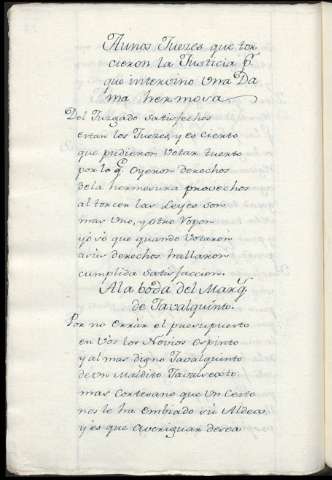 A unos Juezes que tor
cieron la Justicia p.
que intervino una Da
ma hermosa
Del Juzgado satisfechos
estan los Juezes, y es cierto
que pudieron votar tuerto
por lo q. oyeron derechos
de la hermosura provechos
al torcer las Leyes son
mas uno, y otro
yo sé que quando votaron
à sus derechos hallaron
cumplida satisfaccion.
A la boda del Marq.
de Javalquinto.
Por no errar el presupuesto
en vos los Novios os pinto
y al mas digno Javalquinto
de un Maldito
mas cortesano que un Cesto
nos le ha embiado su Aldea
y es que averiguar desea